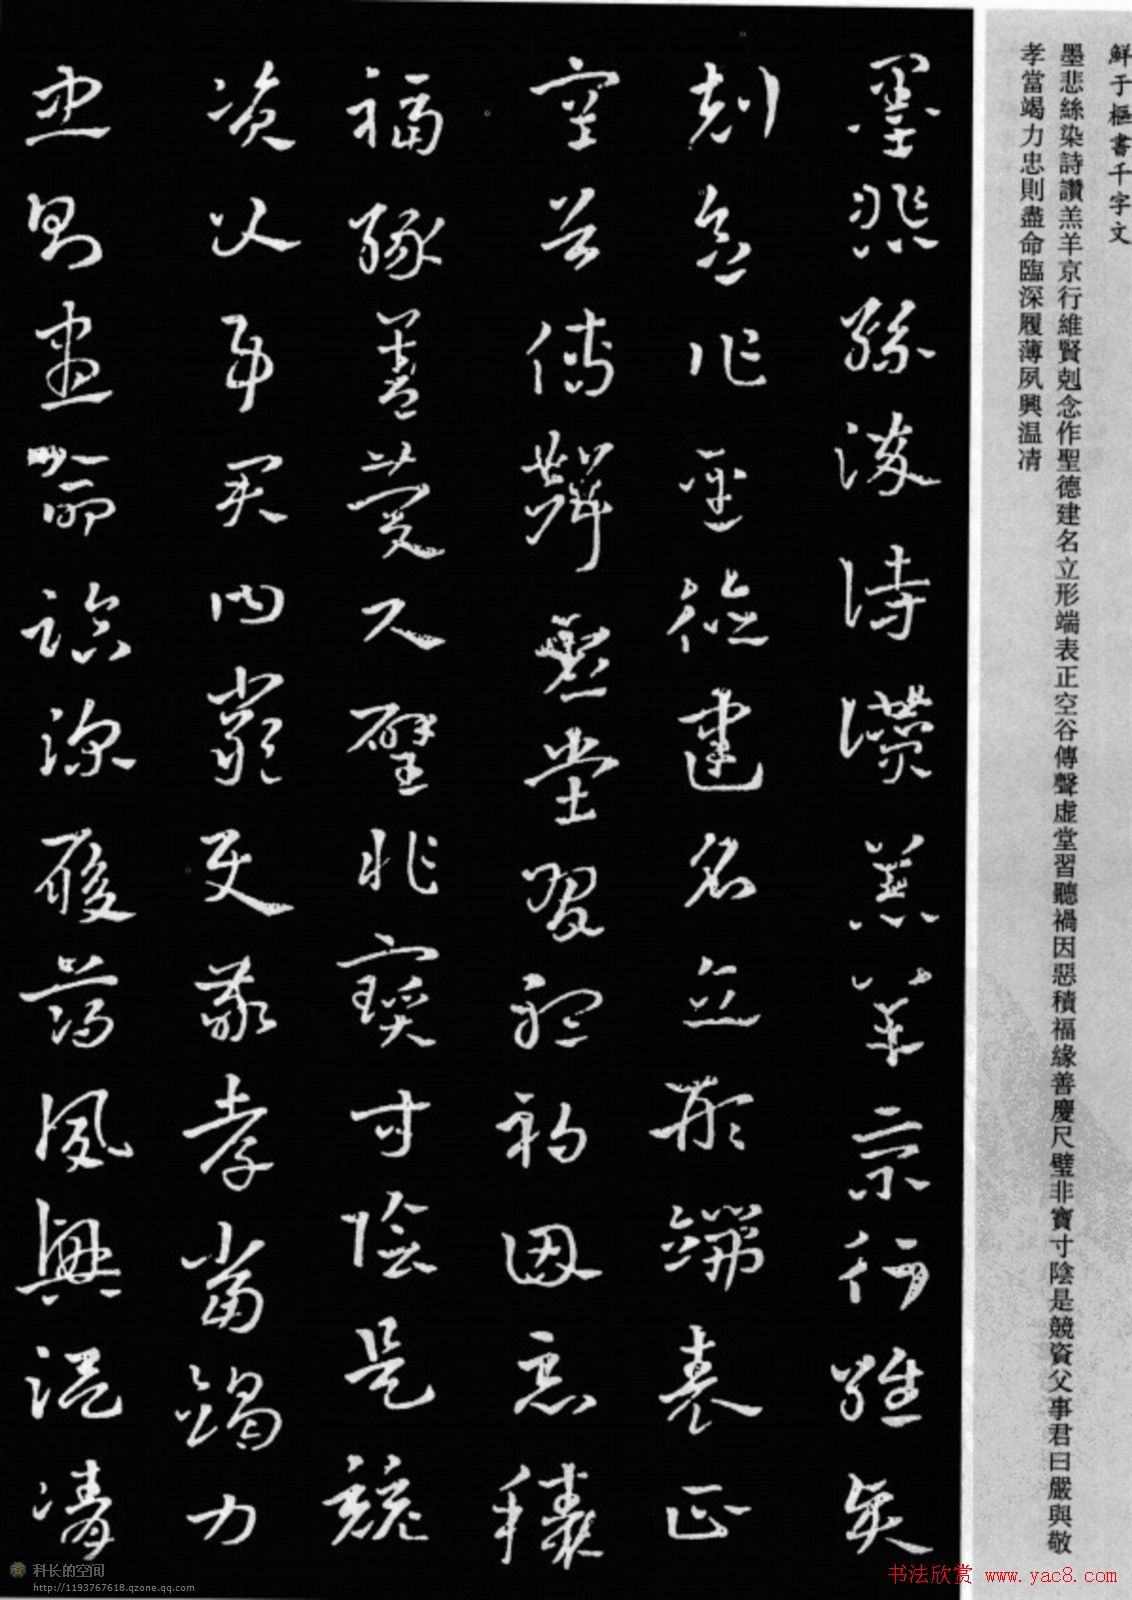 鮮于樞書千字文
墨悲絲染詩讚羔羊京行維賢剋念作聖德建名立形端表正空谷傳聲虛堂習聽禍因惡積福緣善慶尺璧非寶寸陰是競資父事君曰嚴與敬
孝當竭力忠則盡命臨深履薄夙興温凊
墨悲絲染詩讚羔羊京行維賢
剋念作聖德建名立形端表正
空谷傳聲虛堂習聽禍因惡積
福緣善慶尺璧非寶寸陰是競
資父事君曰嚴與敬孝當竭力
忠則盡命臨深履薄夙興温凊
科长的空间
http://1193767618.qzone.qq.com
书法欣赏 www.yac8.com